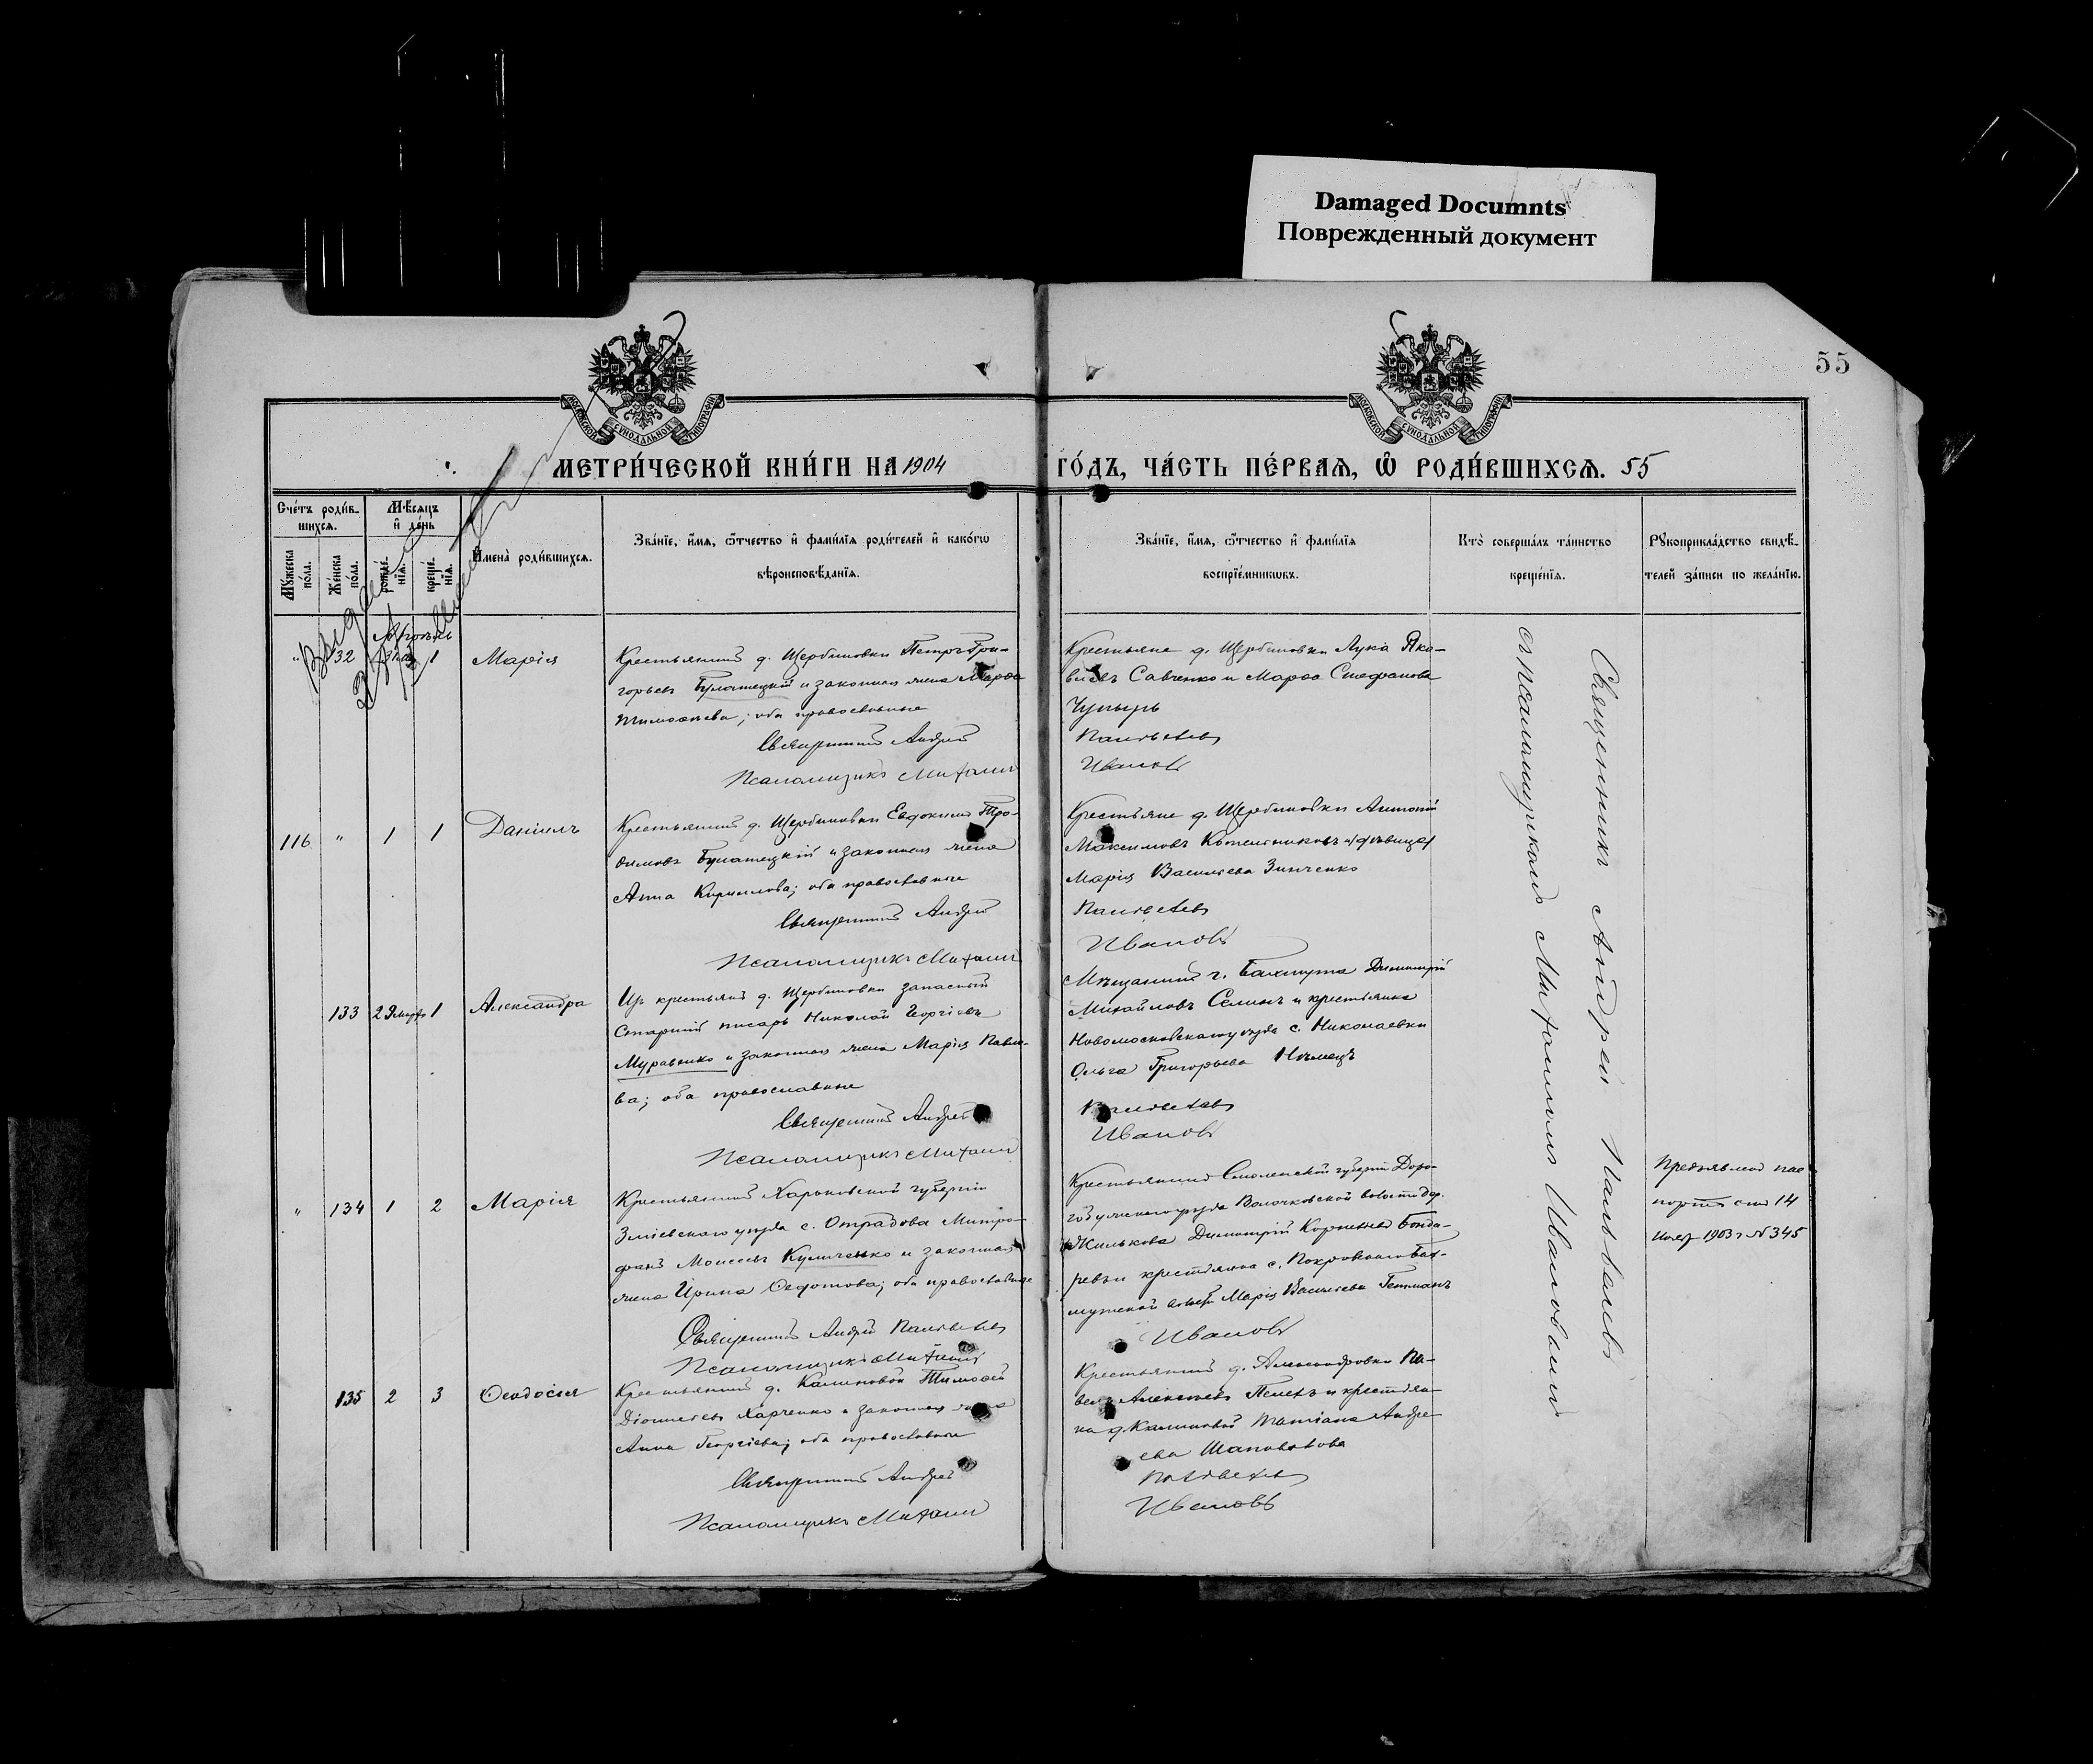 Damaged Documnts
Поврежденный документ
55
МОСКОВСКОЙ СУНОДАЛЬНОЙ ТИПОГРАФІИ
МОСКОВСКОЙ СУНОДАЛЬНОЙ ТИПОГРАФІИ
МЕТРИ́ЧЕСКОЙ КНИ́ГИ НА 1904
ГО́ДЪ, ЧА́СТЬ ПЕ́РВАЯ, Ѿ РОДИ́ВШИХСЯ. 55
Сче́тъ роди́в-
шихся.
Мѣ́сяцъ
и҆ де́нь
Му́жеска по́ла.
Же́нска по́ла.
рожде́-нїя.
креще́-нїя.
И҆мена̀ роди́вшихся.
Зва́нїе, и҆́мя, ѻ҆́тчество и҆ фами́лїя роди́телей и҆ како́гѡ
вѣроисповѣ́данїя.
Зва́нїе, и҆́мя, ѻ҆́тчество и҆ фами́лїя
воспрїе́мниковъ.
Кто̀ соверша́лъ та́инство
креще́нїя.
Рукоприкла́дство свидѣ́-
телей за́писи по жела́нїю.
Апрѣль
1
Марія
Крестьянинъ д. Щербиновки Петръ Гри-
горьевъ Булатецкій и законная жена Марѳа
Тимоѳеева; оба православные
Священникъ Андрей
Псаломщикъ Митрофанъ
Крестьяне д. Щербиновки Лука Яко-
влевъ Савченко и Марѳа Стефанова
Чупырь
Иванов
116 " 1 1 Даніилъ
Крестьянинъ д. Щербиновки Евдокимъ Тро-
фимовъ Булатецкій и законная жена
Анна Кириллова; оба православные
Священникъ Андрей
Псаломщикъ
Крестьяне д. Щербиновки Антоній
Максимовъ Котельниковъ и дѣвица
Марія Васильева Зинченко
Ивановъ
133 29 марта 1 Александра
Изъ крестьянъ д. Щербиновки запасный
Старшій писарь Николай Георгіевъ
Муравенко и законная жена Марія Павло-
ва; оба православные
Священникъ Андрей
Псаломщикъ
Мѣщанинъ г. Бахмута Димитрій
Михайловъ Селинъ и крестьянка
Новомосковскаго уѣзда с. Николаевки
Ольга Григорьева Нѣмецъ
Ивановъ
" 134 1 2 Марія
Крестьянинъ Харьковской губерніи
Зміевскаго уѣзда с. Отрадова Митро-
фанъ Моисеевъ Куличенко и законная
жена Ирина Ѳедотова; оба православные
Священникъ Андрей
Псаломщикъ
Крестьянинъ Смоленской губерніи Доро-
гобужскаго уѣзда Волочковской волости дер.
Жилькова Димитрій Корнеевъ Бонда-
ревъ и крестьянка с. Покровскаго Бах-
мутской Марія Васильева Гетманъ
Ивановъ
Предъявленъ пас-
портъ отъ 14
1903 г. № 345
135 2 3 Ѳеодосія
Крестьянинъ д. Калиновой Тимоѳей
Діонисіевъ Харченко и законная жена
Анна Георгіева; оба православные
Священникъ Андрей
Псаломщикъ
Крестьянинъ д. Александровки Па-
велъ Алексеевъ и крестьян-
ка д. Калиновой Татіана Андре-
ева Шаповалова
Ивановъ
Священникъ Андрей
съ псаломщикомъ Ивановымъ